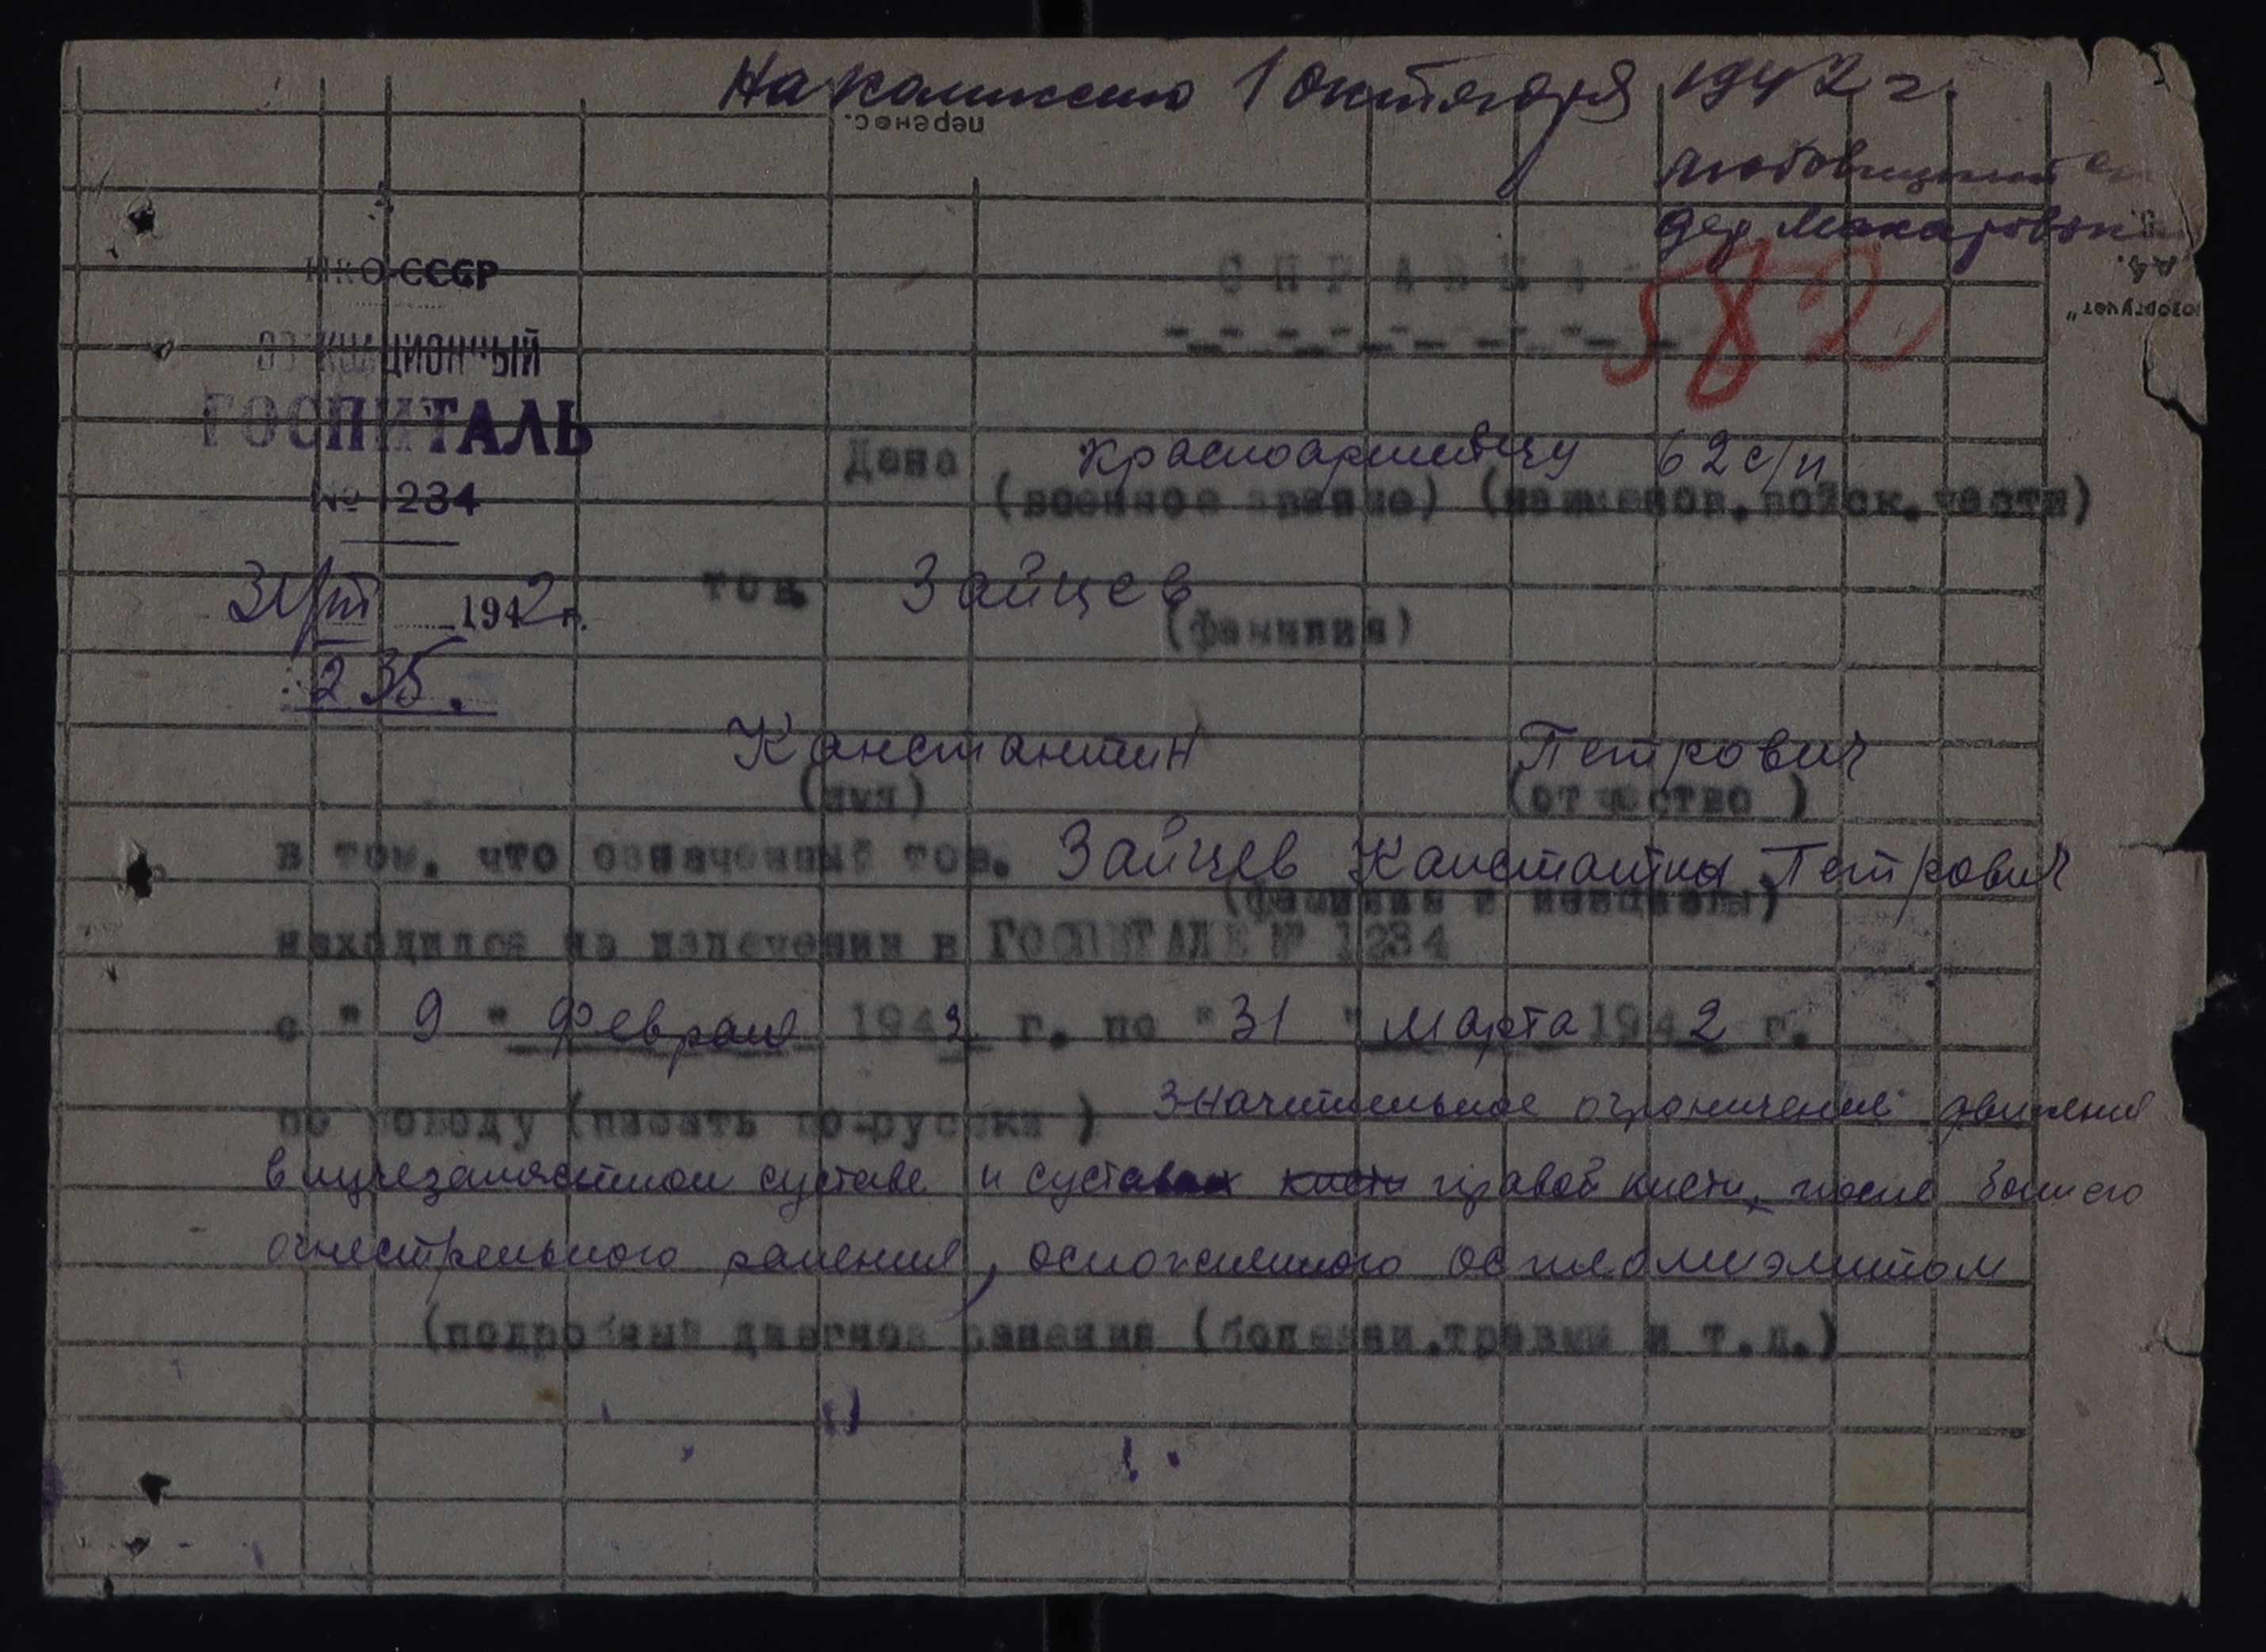 На комиссию 1 октября 1942 г.
перенос.
дер Макаровска
СПРАВКА
582
НКО СССР
ЭВАКУАЦИОННЫЙ
ГОСПИТАЛЬ
№ 1234
31/III 1942 г.
235.
Дана красноармейцу 62 с/п
(военное звание) (наименов. войск. части)
тов. Зайцев
(фамилия)
Канстантин Петрович
(имя) (отчество)
в том, что означенный тов. Зайцев Канстантин Петрович
(фамилия и инициалы)
находился на излечении в ГОСПИТАЛЕ № 1234
с " 9 " февраля 1942 г. по "31" марта 1942 г.
по поводу (писать по-русски) значительное ограничение движения
в лучезапястном суставе и суставах кисти правой кисти, после
огнестрельного ранения, осложненного остеомиэлитом
(подробный диагноз ранения (болезни, травмы и т.д.)